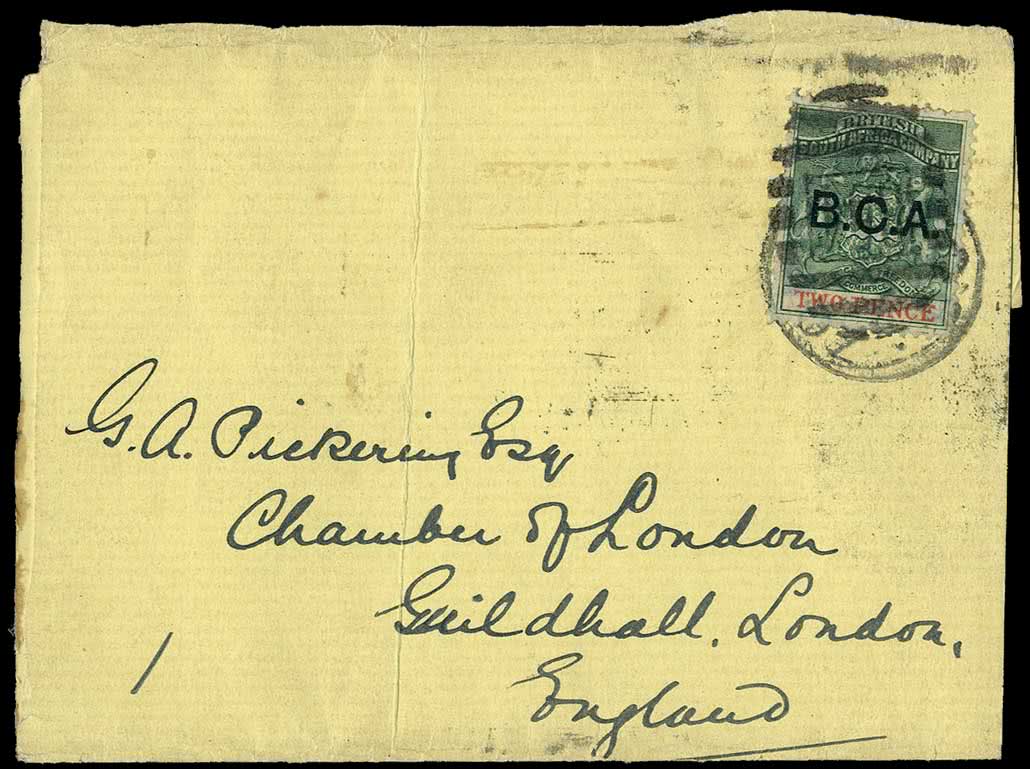 BRITISH
SOUTH AFRICA COMPANY
B.C.A.
COMMERCE
TWO PENCE
G. A. Pickering Esq
Chamber of London
Guildhall, London,
England